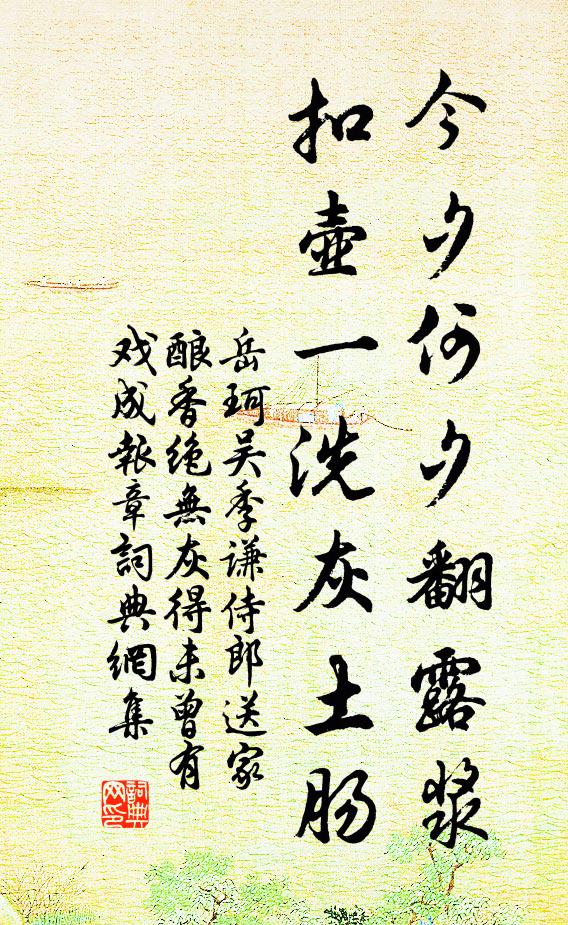 今夕何夕翻露漿
扣壺一洗灰土肠
岳珂吴季谦侍郎送家
酿香绝無灰得未曾有
戏成報章詞典網集
詞典
网印